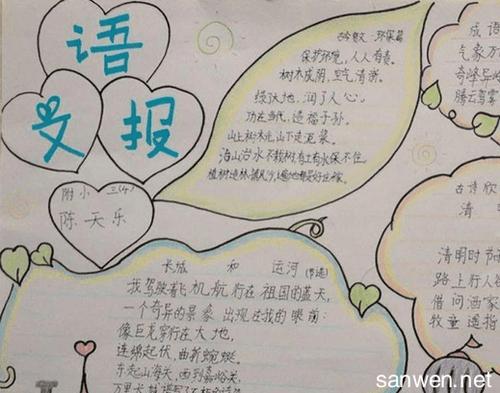 语
文 报
附小 三(4)
陈天乐
环保篇
保护环境,人人有责。
树木成荫,空气清新。
润了人心。
功在当代,造福子孙。
山上树木光,山下走泥浆。
治山治水不栽树,有土有水保不住。
植树造林
长城 和 运河(节选)
我驾驶着飞机航行在祖国的蓝天,
一个奇异的景象出现在我的眼前:
像巨龙穿行在大地,
连绵起伏,曲折蜿蜒。
东起山海关,西到嘉峪关,
成语
气象万
奇峰异
腾云驾雾
古诗欣
清
清明时节
路上行人
借问酒家
牧童遥指
sanwen.net